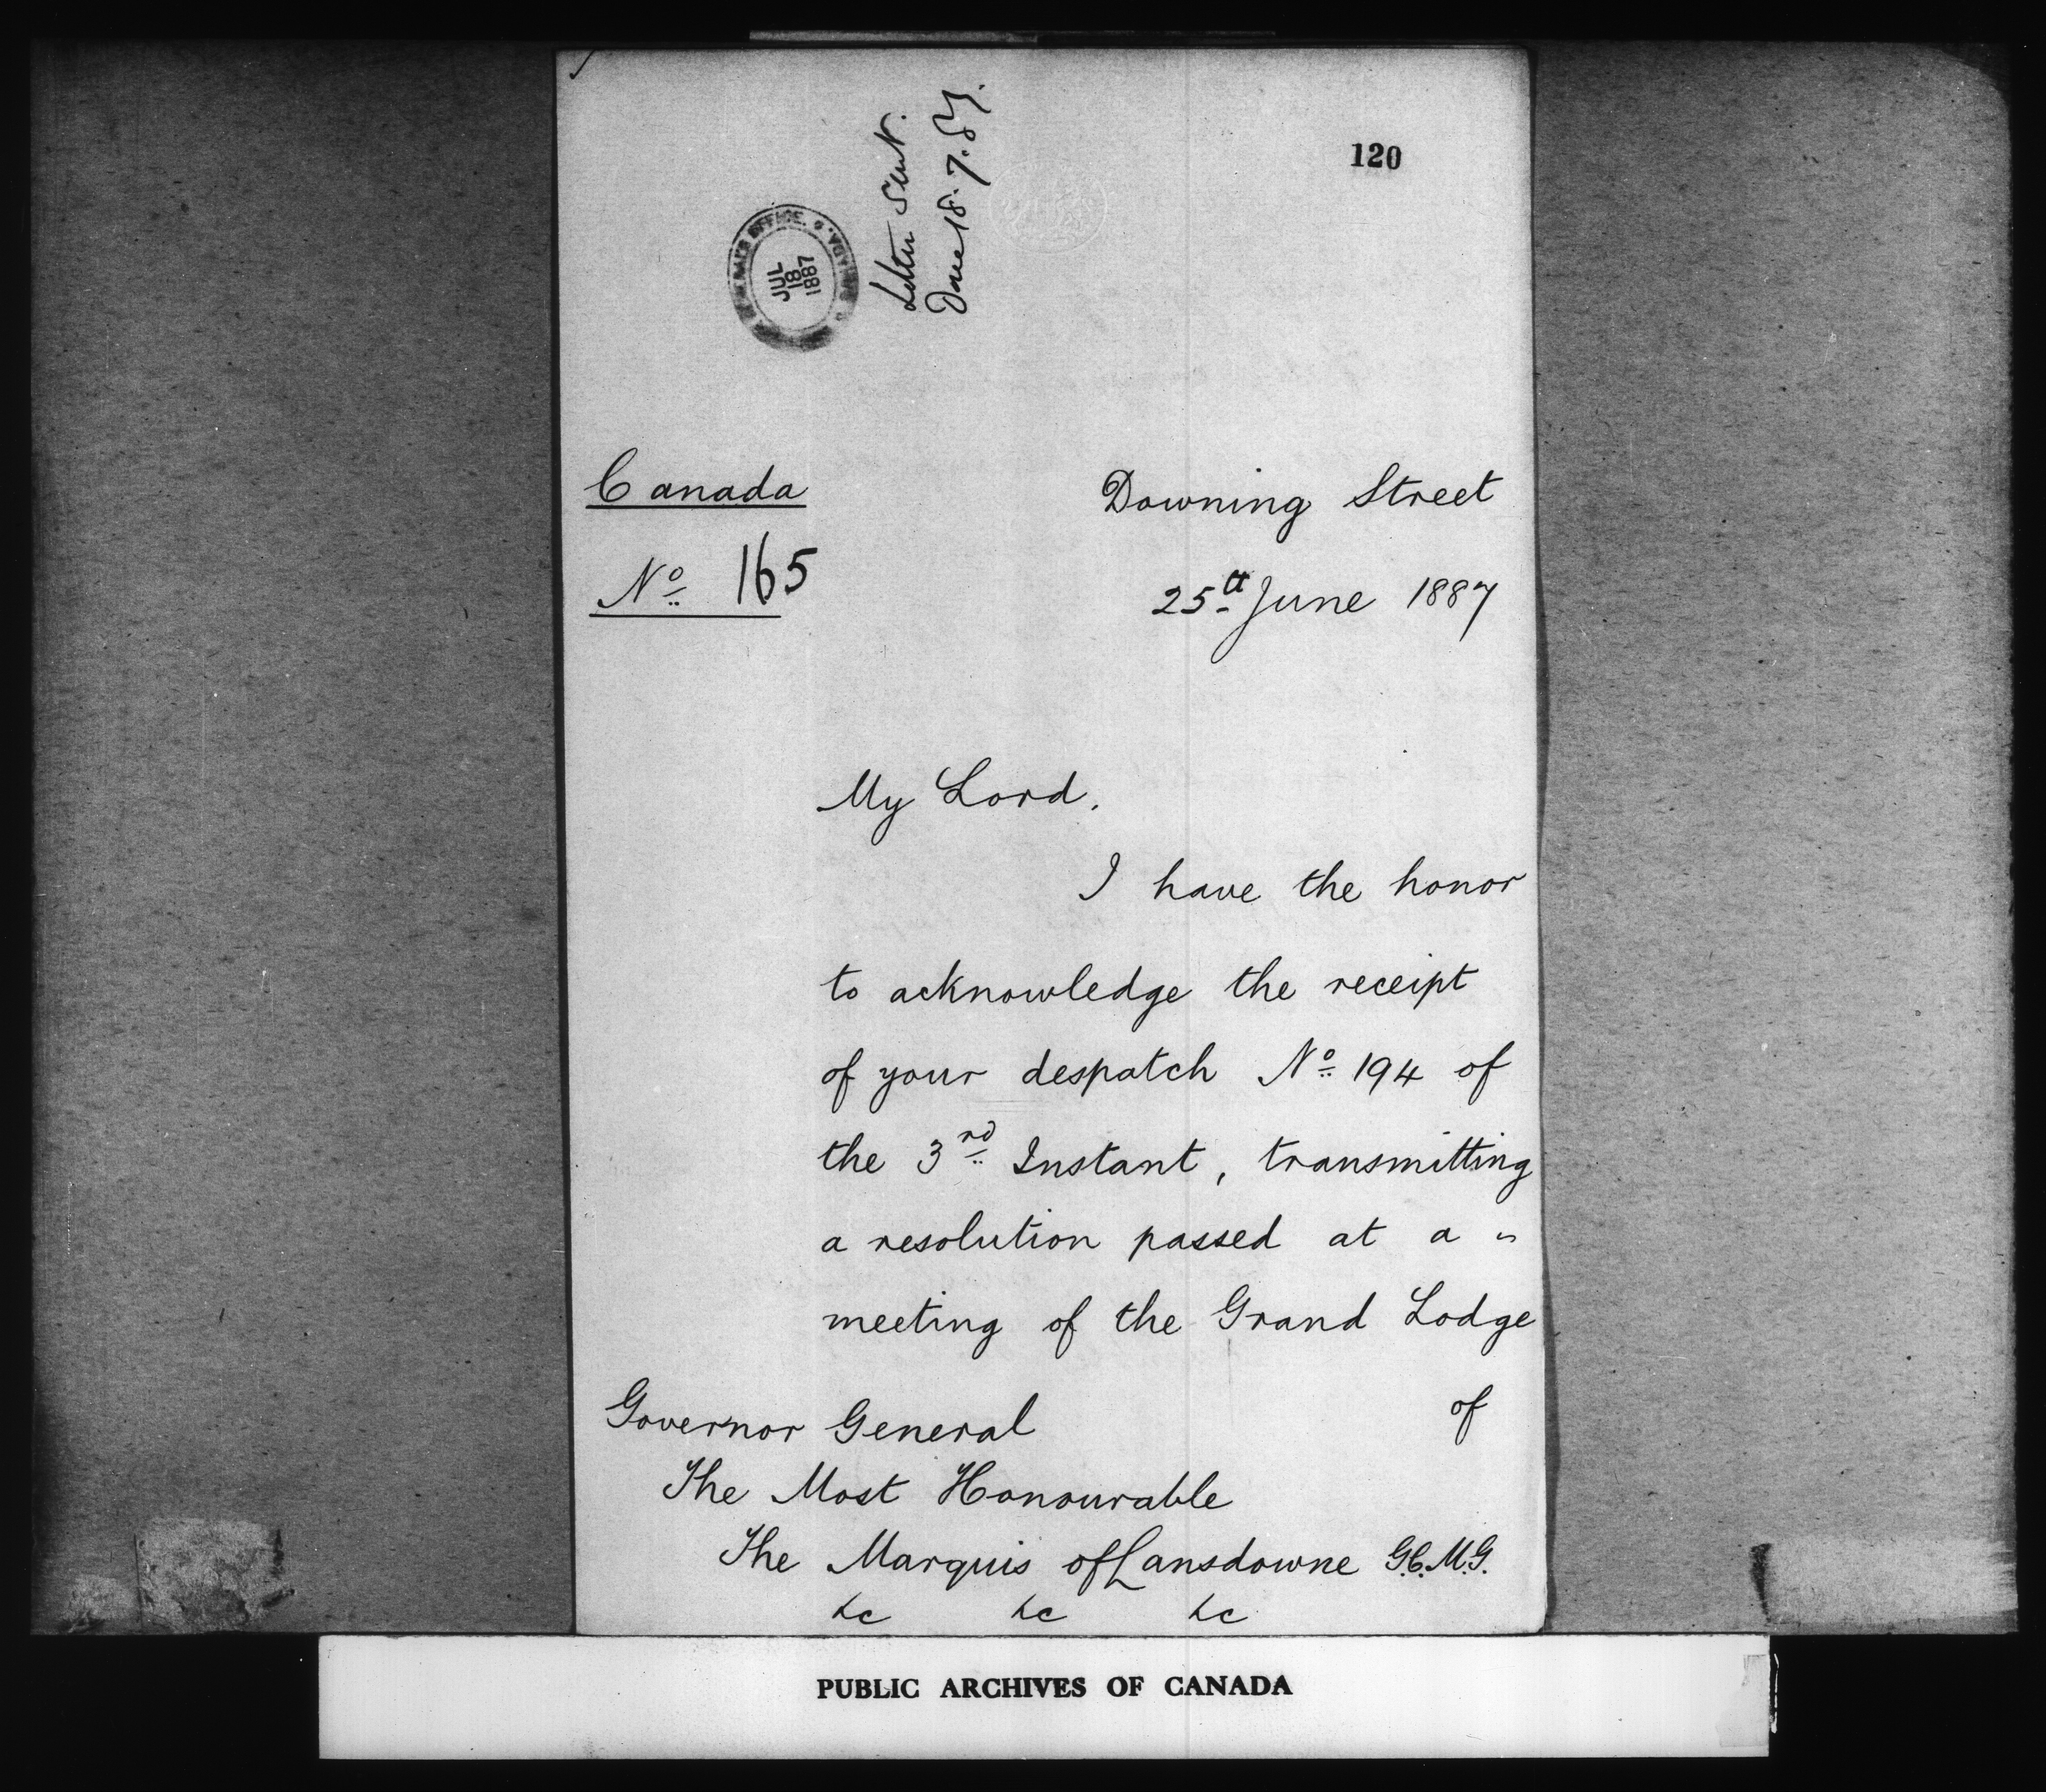 120
Letter sent.
Done 18.7.87.
OFFICE.
JUL
18
1887
CANADA
Canada
Nº 165
Downing Street
25th June 1887
My Lord,
I have the honor
to acknowledge the receipt
of your despatch Nº 194 of
the 3rd Instant, transmitting
a resolution passed at a
meeting of the Grand Lodge
of
Governor General
The Most Honourable
The Marquis of Lansdowne G.C.M.G.
&c &c &c
PUBLIC ARCHIVES OF CANADA